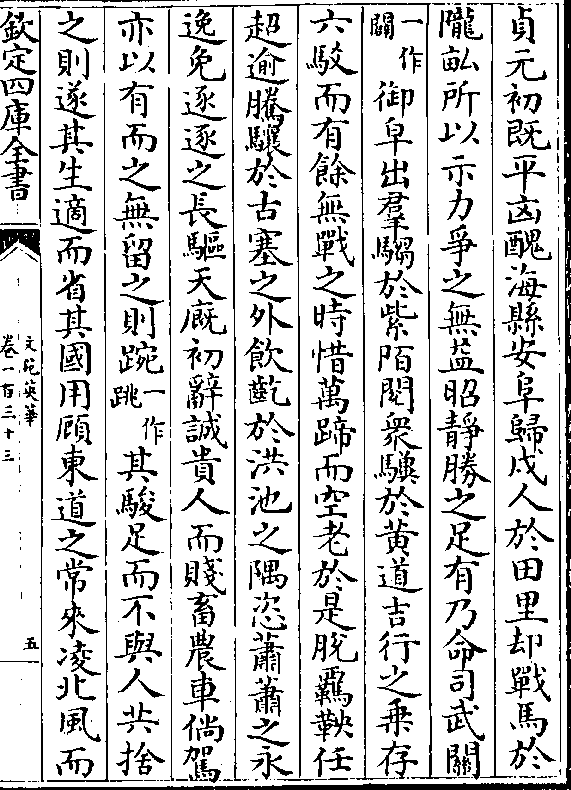 貞元初既平凶醜海縣安阜歸戍人於田里却戰馬於
隴畝所以示力爭之無益昭靜勝之足有乃命司武關
一作闢御皁出羣騶於紫陌閱衆驥於黄道吉行之乗存
六駮而有餘無戰之時惜萬蹄而空老於是脱羈鞅任
超逾騰驤於古塞之外飲齕於洪池之隅恣蕭蕭之永
逸免逐逐之長驅天廐初辭誠貴人而賤畜農車倘駕
亦以有而之無留之則踠一作跳其駿足而不與人共捨
之則遂其生適而省其國用顧東道之常來凌北風而
欽定四庫全書
文苑英華
卷一百三十三
五